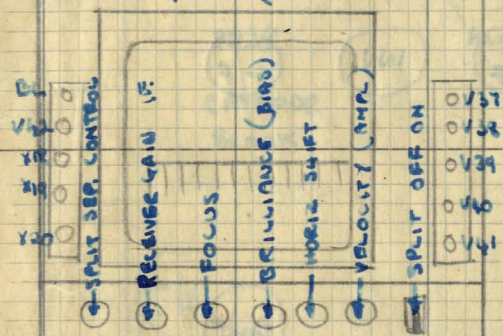 SPLIT SEP. CONTROL
RECEIVER GAIN I.F.
FOCUS
BRILLIANCE (BIAS)
HORIZ SHIFT
VELOCITY (AMPL)
SPLIT OFF ON
V37
V38
V39
V40
V41